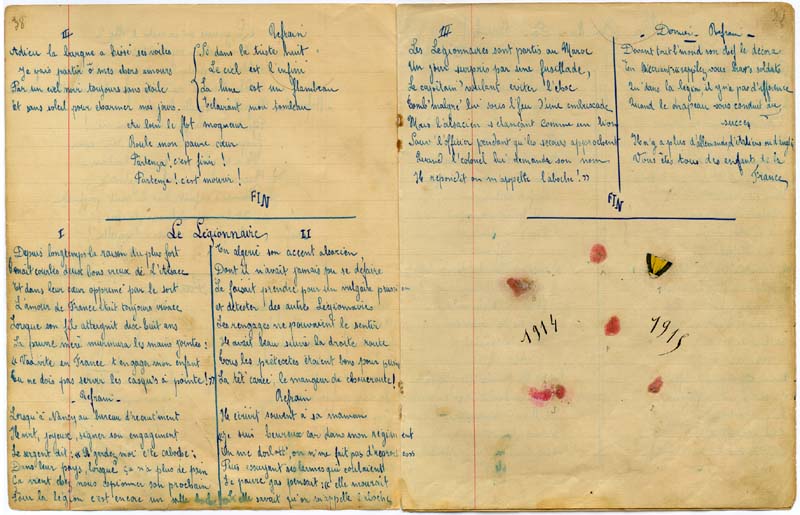 38
II
Adieu la barque a hissé ses voiles
Je vais partir ô mes chers amours
Par un ciel noir toujours sans étoile
Et sans soleil pour charmer mes jours.
Refrain
Si dans la triste nuit
Le ciel est l'infini
La lune est un flambeau
Eclairant mon tombeau
Au loin le flot moqueur
Roule mon pauvre cœur
Partenza! c'est finir!
Partenza! c'est mourir!
FIN
Le Légionnaire
I
Depuis longtemps la raison du plus fort
courbés deux bons vieux de l'Alsace
Et dans leur cœur opprimé par le sort
L'amour de France était toujours vivace
Lorsque son fils atteignit dix huit ans
La pauvre mère murmura les mains jointes:
« Va vite en France t'engager mon enfant
Tu ne dois pas servir les casqu's à pointe! »
Refrain
Lorsqu'à Nancy au bureau d'recrut'ment
Il vint, joyeux, signer son engagement
Le sergent dit: « caboche:
Dans leur pays, lorsque ça n'a plus de pain
Ça vient chez nous espionner son prochain
Pour la légion c'est encore un
II
En algérie son accent alsacien,
Dont il n'avait jamais pu se défaire
Le faisait prendre pour un vulgaire prussien
et détester des autres Légionnaires
Les rengagés ne pouvaient le sentir
Il avait beau suivre la droite route
Tous les prétextes étaient bons pour
La têt' carée, le mangeur de choucroute!
Refrain
Il écrivit souvent à sa maman
Je suis heureux car dans mon régiment
On me dorlott', on n'me fait pas d'reproches
Puis essuyant ses larmes qui coulaient
Le pauvre gas pensait: elle mourrait
Si elle savait qu'on m'appelle
III
Les Légionnaires sont partis au Maroc
Un jour surpris par une fusillade,
Le capitain' voulant éviter l'choc
Tomb' malgré lui sous l'feu d'une embuscade
Mais l'alsacien s'élançant comme un lion
Sauv' l'officier pendant qu'les secours approchent
Quand l'colonel lui demande son nom
Il répondit on m'appelle
Dernier Refrain
Devant tout l'mond' son chef le décora
En s'écriant rappelez vous bravs soldats
Qu'dans la légion il n'y a pas d'différence
Quand le drapeau vous conduit au
succès
Il n'y a plus d'allemands d'italiens
Vous êtes tous des enfants de la
France
FIN
1914
1915